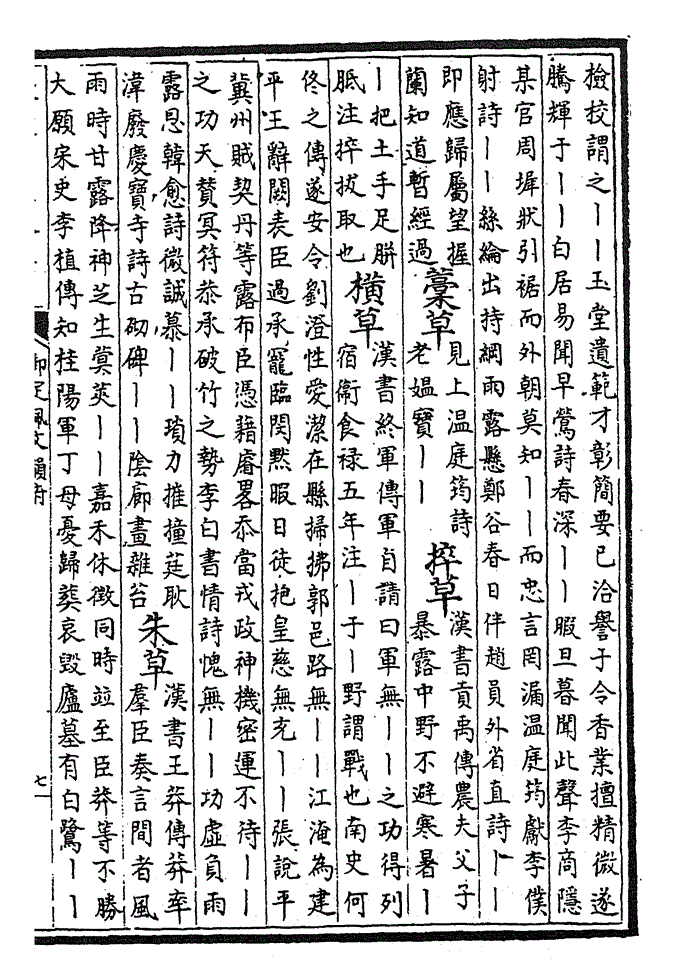 檢校謂之丨丨玉堂遺範才彰簡要已洽譽于令香業擅精微遂
騰輝于丨丨白居易聞早鶯詩春深丨丨暇旦暮聞此聲李商隱
某官周墀狀引裾而外朝莫知丨丨而忠言罔漏温庭筠獻李僕
射詩丨丨絲綸出持綱雨露懸鄭谷春日伴趙員外省直詩丨丨
即應歸屬望握蘭知道暫經過
藁草
見上温庭筠詩老媪寶丨丨
捽草
漢書貢禹傳農夫父子暴露中野不避寒暑丨
丨把土手足胼胝注捽拔取也
横草
漢書終軍傳軍自請曰軍無丨丨之功得列宿衞食禄五年注丨于丨野謂戰也南史何
佟之傳遂安令劉澄性愛潔在縣掃拂郭邑路無丨丨江淹為建
平王辭闕表臣過承寵臨閔黙暇日徒抱皇慈無充丨丨張說平
冀州賊契丹等露布臣憑藉睿畧忝當戎政神機密運不待丨丨
之功天賛冥符恭承破竹之勢李白書情詩愧無丨丨功虛負雨
露恩韓愈詩微誠慕丨丨瑣力摧撞莛耿湋廢慶寶寺詩古砌碑丨丨陰廊畫雜苔
朱草
漢書王莽傳莽率羣臣奏言間者風
雨時甘露降神芝生蓂莢丨丨嘉禾休徴同時竝至臣莽等不勝
大願宋史李植傳知桂陽軍丁母憂歸葬哀毁廬墓有白鷺丨丨
御定佩文韻府
七